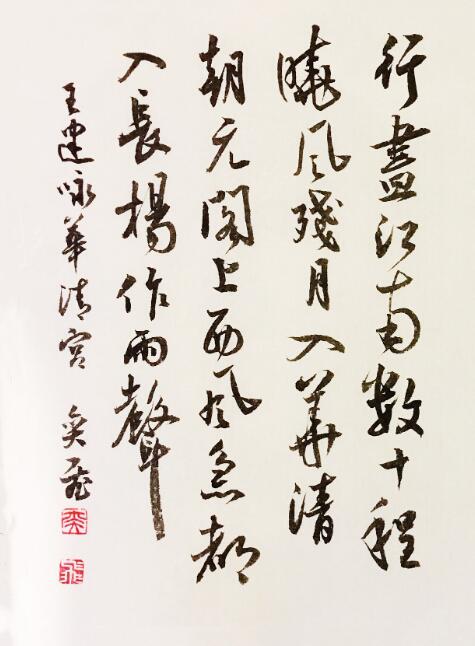 行盡江南數十程
曉風殘月入華清
朝元閣上西風急都
入長楊作雨聲
王建咏華清宮 奕飛
奕
飛